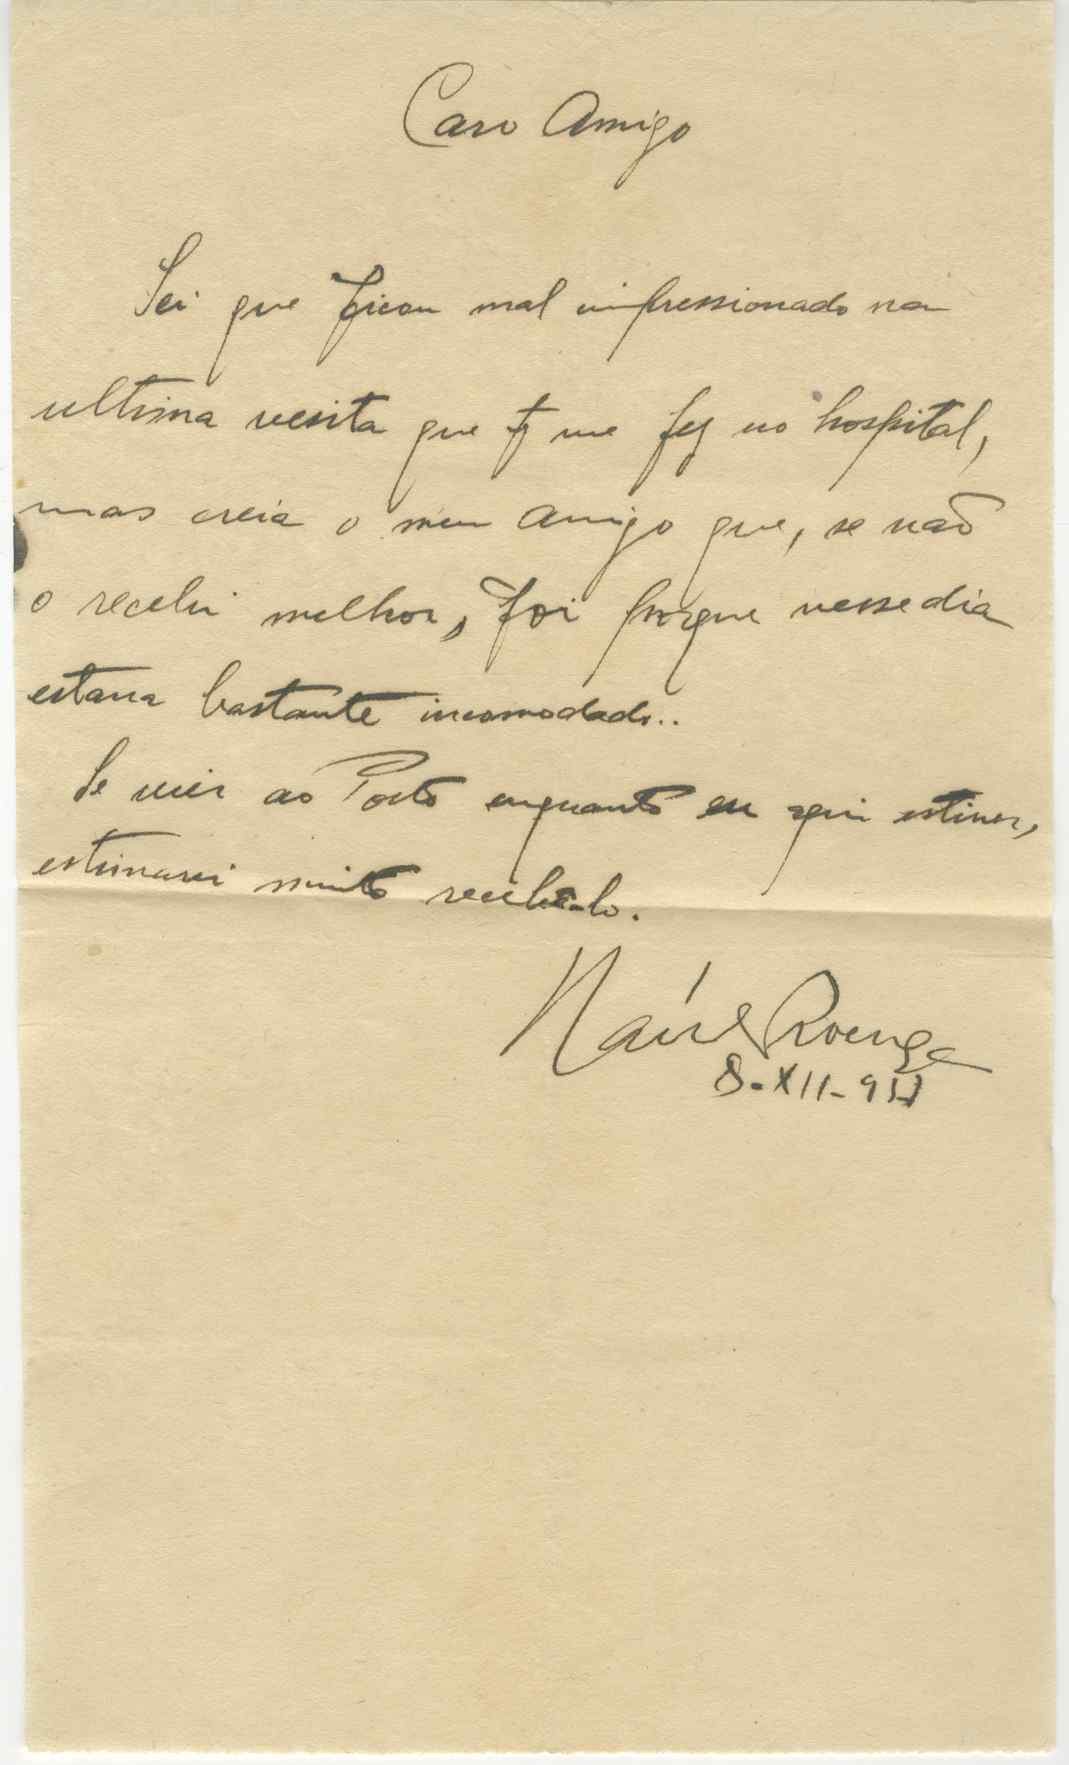 Caro Amigo
Sei que ficou mal impressionado na
ultima vesita que me fez no hospital,
mas creia o meu amigo que, se não
o recebi melhor, foi porque nesse dia
estava bastante incomodado..
Se vier ao Porto enquanto eu aqui estiver,
estimarei muito recebe-lo.
Raúl Proença
8-XII-9